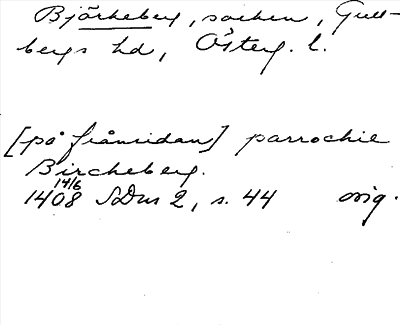 Björkeberg, socken, Gull-
bergs hd, Österg. l.
[på frånsidan] parrochie
Bircheberg.
14/6
1408 SDns 2, s. 44 orig.